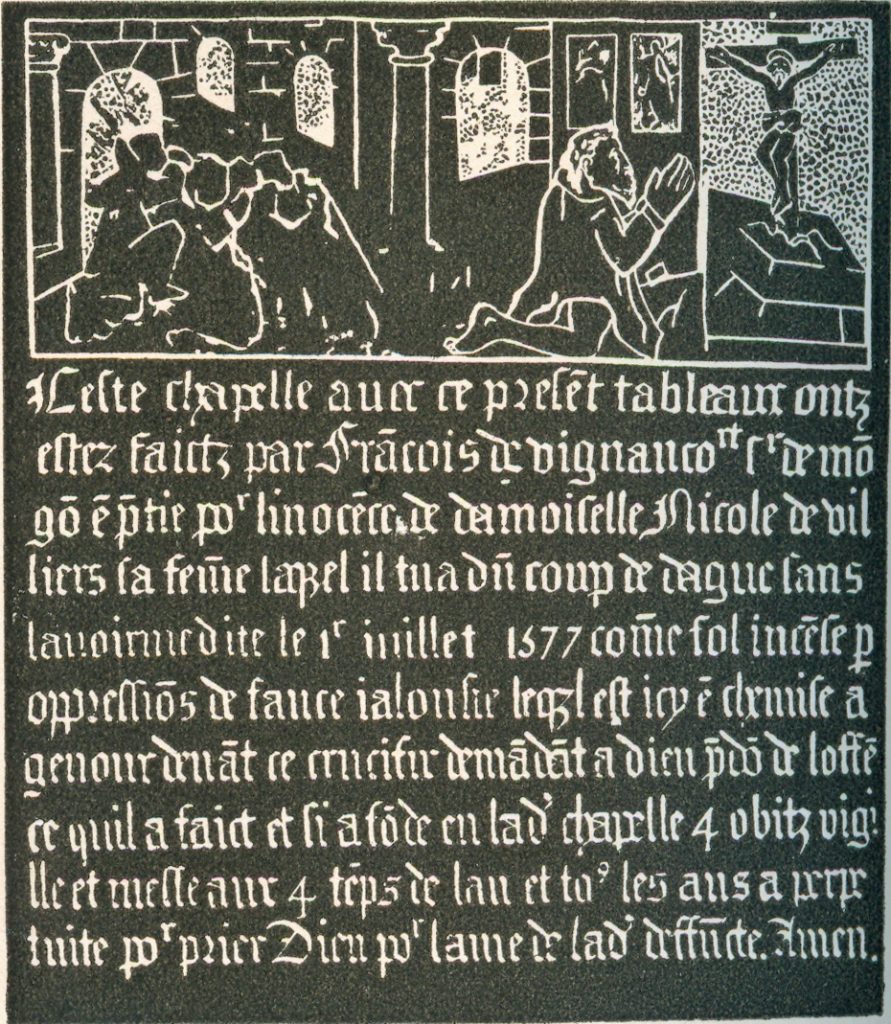 Ceste chapelle avec ce presẽt tableaux ontz
estez faictz par Frãcois de vignaucoʳᵗ sʳ de mõ
gõ ẽ p̃tie poʳ linocẽce de damoiselle Nicole de vil
liers sa fem̃e laq̃l il tua dũ coup de dague sans
lavoir medite le 1ʳ iuillet 1577 com̃e fol incẽse p
oppressiõs de fauce ialousie leq̃l est icy ẽ chemise a
genoux devãt ce crucifix demãdãt a dieu p̃dõ de loffẽ
ce quil a faict et si a fõde en ladᵗ chapelle 4 obitz vigi
lle et messe aux 4 tẽps de lan et toꝰ les ans a perpe
tuite poʳ prier Dieu poʳ lame de ladᵗ deffũcte. Amen.